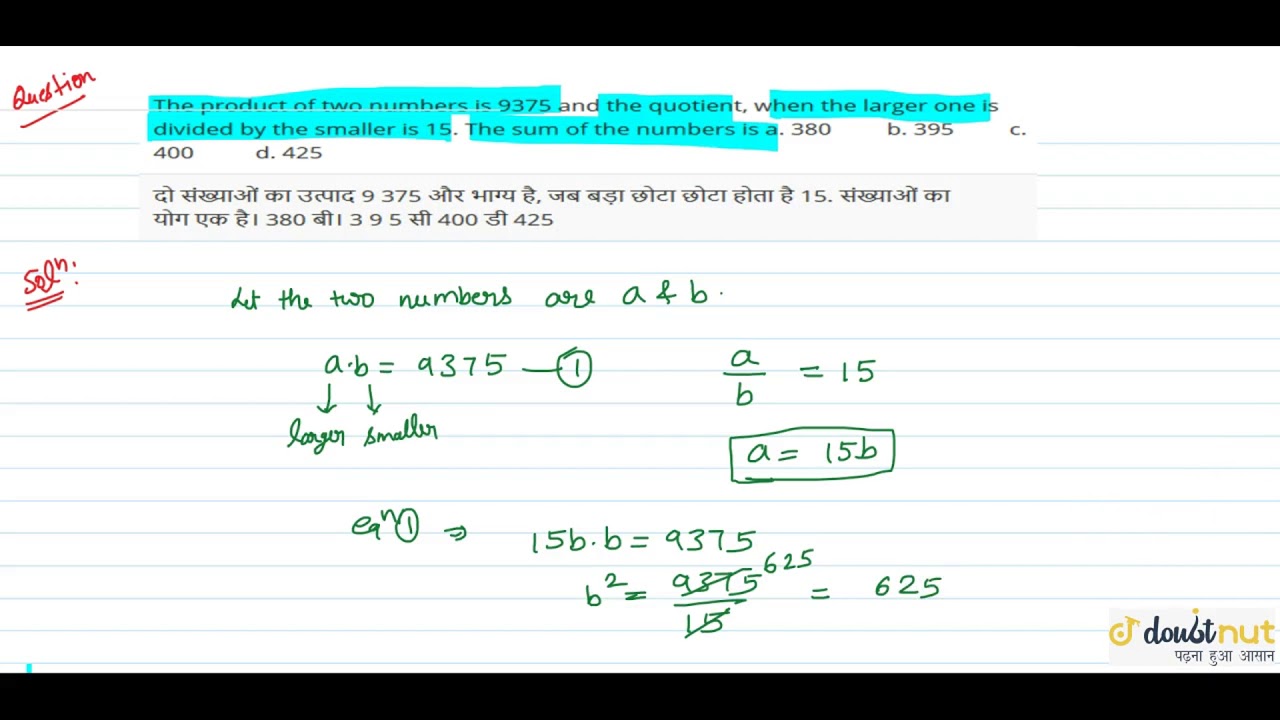 Question
The product of two numbers is 9375 and the quotient, when the larger one is
divided by the smaller is 15. The sum of the numbers is a. 380 b. 395 c.
400 d. 425
दो संख्याओं का उत्पाद 9 375 और भाग्य है, जब बड़ा छोटा छोटा होता है 15. संख्याओं का
योग एक है। 380 बी। 3 9 5 सी 400 डी 425
Solⁿ:
Let the two numbers are a & b.
a·b = 9375 — ①
a/b = 15
larger smaller
a = 15b
eqⁿ① ⇒ 15b·b = 9375
b² = 9375/15 625 = 625
doubtnut
पढ़ना हुआ आसान